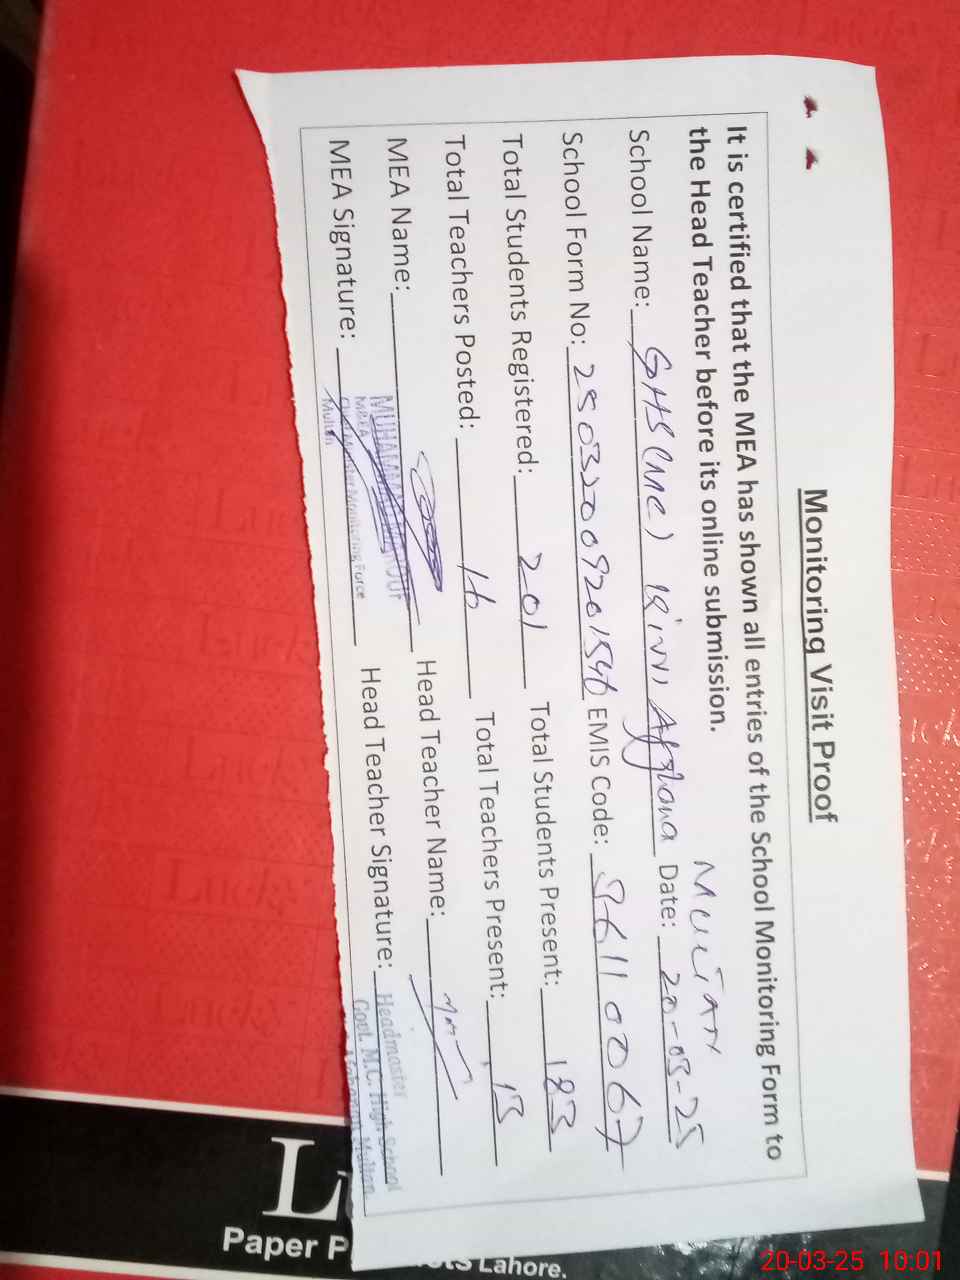 Monitoring Visit Proof
It is certified that the MEA has shown all entries of the School Monitoring Form to
the Head Teacher before its online submission.
Multan
School Name: GHS (MC) Kirri Afghana Date: 20-03-25
School Form No: 2503200920154 EMIS Code: 36110067
Total Students Registered: 201 Total Students Present: 183
Total Teachers Posted: 16 Total Teachers Present: 13
MEA Name: MUHAMMAD Head Teacher Name:
MEA Signature: Monitoring Force Multan Head Teacher Signature: Headmaster
Govt. M.C. High School
Multan
Paper P
Lahore.
20-03-25 10:01